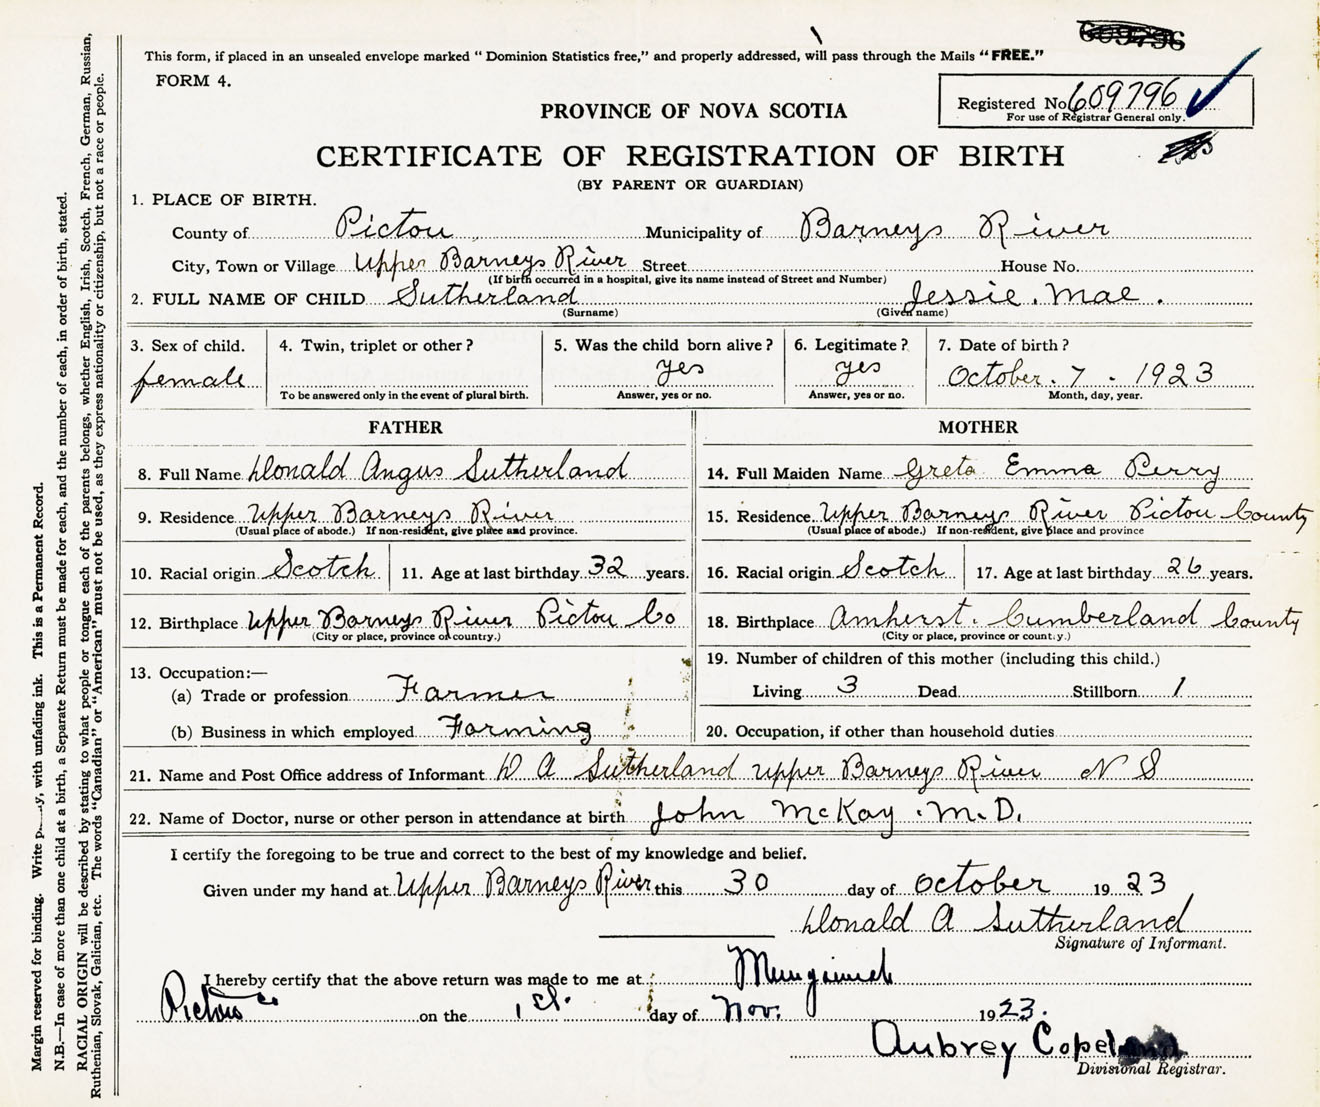 This form, if placed in an unsealed envelope marked “Dominion Statistics free,” and properly addressed, will pass through the Mails “FREE.”
FORM 4.
Registered No. 609796
For use of Registrar General only.
PROVINCE OF NOVA SCOTIA
CERTIFICATE OF REGISTRATION OF BIRTH
(BY PARENT OR GUARDIAN)
1. PLACE OF BIRTH.
County of Pictou Municipality of Barneys River
City, Town or Village Upper Barneys River Street House No.
(If birth occurred in a hospital, give its name instead of Street and Number)
2. FULL NAME OF CHILD Sutherland Jessie. Mae.
(Surname) (Given name)
3. Sex of child. female
4. Twin, triplet or other?
To be answered only in the event of plural birth.
5. Was the child born alive? yes
Answer, yes or no.
6. Legitimate? yes
Answer, yes or no.
7. Date of birth? October. 7. 1923
Month, day, year.
FATHER
8. Full Name Donald Angus Sutherland
9. Residence Upper Barneys River
(Usual place of abode.) If non-resident, give place and province.
10. Racial origin Scotch 11. Age at last birthday 32 years.
12. Birthplace Upper Barneys River Pictou Co
(City or place, province or country.)
13. Occupation:—
(a) Trade or profession Farmer
(b) Business in which employed Farming
MOTHER
14. Full Maiden Name Greta Emma Perry
15. Residence Upper Barneys River Pictou County
(Usual place of abode.) If non-resident, give place and province
16. Racial origin Scotch 17. Age at last birthday 26 years.
18. Birthplace Amherst. Cumberland County
(City or place, province or county.)
19. Number of children of this mother (including this child.)
Living 3 Dead Stillborn 1
20. Occupation, if other than household duties
21. Name and Post Office address of Informant D A Sutherland Upper Barneys River N S
22. Name of Doctor, nurse or other person in attendance at birth John McKay. M.D.
I certify the foregoing to be true and correct to the best of my knowledge and belief.
Given under my hand at Upper Barneys River this 30 day of October 1923
Donald A Sutherland
Signature of Informant.
I hereby certify that the above return was made to me at
Pictou Co on the 1st. day of Nov. 1923.
Aubrey
Divisional Registrar.
Margin reserved for binding. Write with unfading ink. This is a Permanent Record.
N.B.—In case of more than one child at a birth, a Separate Return must be made for each, and the number of each, in order of birth, stated.
RACIAL ORIGIN will be described by stating to what people or tongue each of the parents belongs, whether English, Irish, Scotch, French, German, Russian,
Ruthenian, Slovak, Galician, etc. The words “Canadian” or “American” must not be used, as they express nationality or citizenship, but not a race or people.